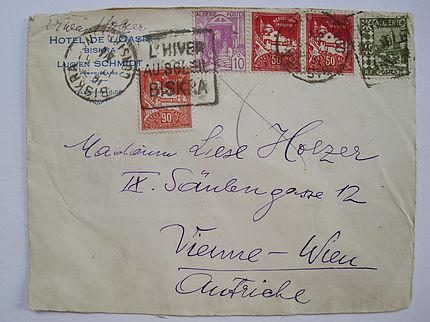 HOTEL DE L'OASIS
BISKRA
LUCIEN SCHMIDT
PROPRIETAIRE
L'HIVER
AU SOLEIL
BISKRA
BISKRA
ALGERIE POSTES
10
50
50
ALGERIE
90
Madame Liese Holzer
IX. Säulengasse 12
Vienne - Wien
Autriche